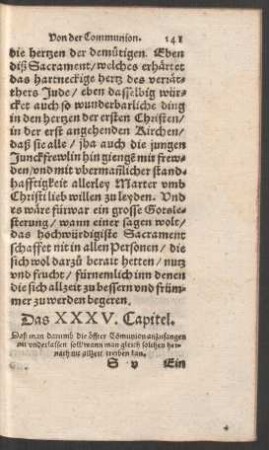 Von der Communion. 141
die hertzen der demütigen. Eben
diß Sacrament/ welches erhärtet
das hartneckige hertz des verrät-
thers Jude/ eben dasselbig wür-
cket auch so wunderbarliche ding
in den hertzen der ersten Christen/
in der erst angehenden Kirchen/
daß sie alle/ jha auch die jungen
Junckfrewlin hin giengẽ mit frew-
den/ vnd mit vbermañlicher stand-
hafftigkeit allerley Marter vmb
Christi lieb willen zu leyden. Vnd
es wäre fürwar ein grosse Gotsle-
sterung/ wann einer sagen wolt/
das hochwürdigiste Sacrament
schaffet nit in allen Personen/ die
sich wol darzů berait hetten/ nutz
vnd frucht/ fürnemlich inn denen
die sich allzeit zu bessern vnd früm-
mer zu werden begeren.
Das XXXV. Capitel.
Daß man darumb die öffter Cõmunion anzufangen
nit vnderlassen soll/ wann man gleich solchen her-
nach nit allzeit treiben kan.
S v Ein